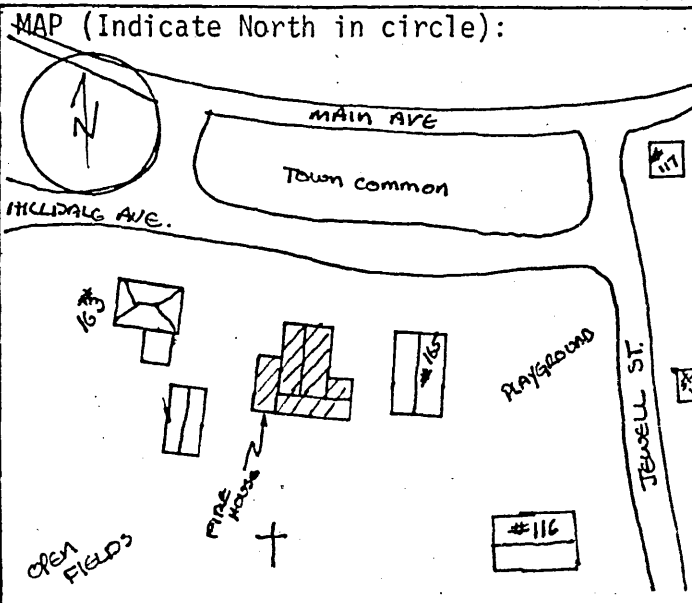 MAP (Indicate North in circle):
N
MAIN AVE
Town Common
# 117
HILLDALE AVE.
# 163
# 165
PLAYGROUND
JEWELL ST.
FIRE
HOUSE
# 116
OPEN
FIELDS